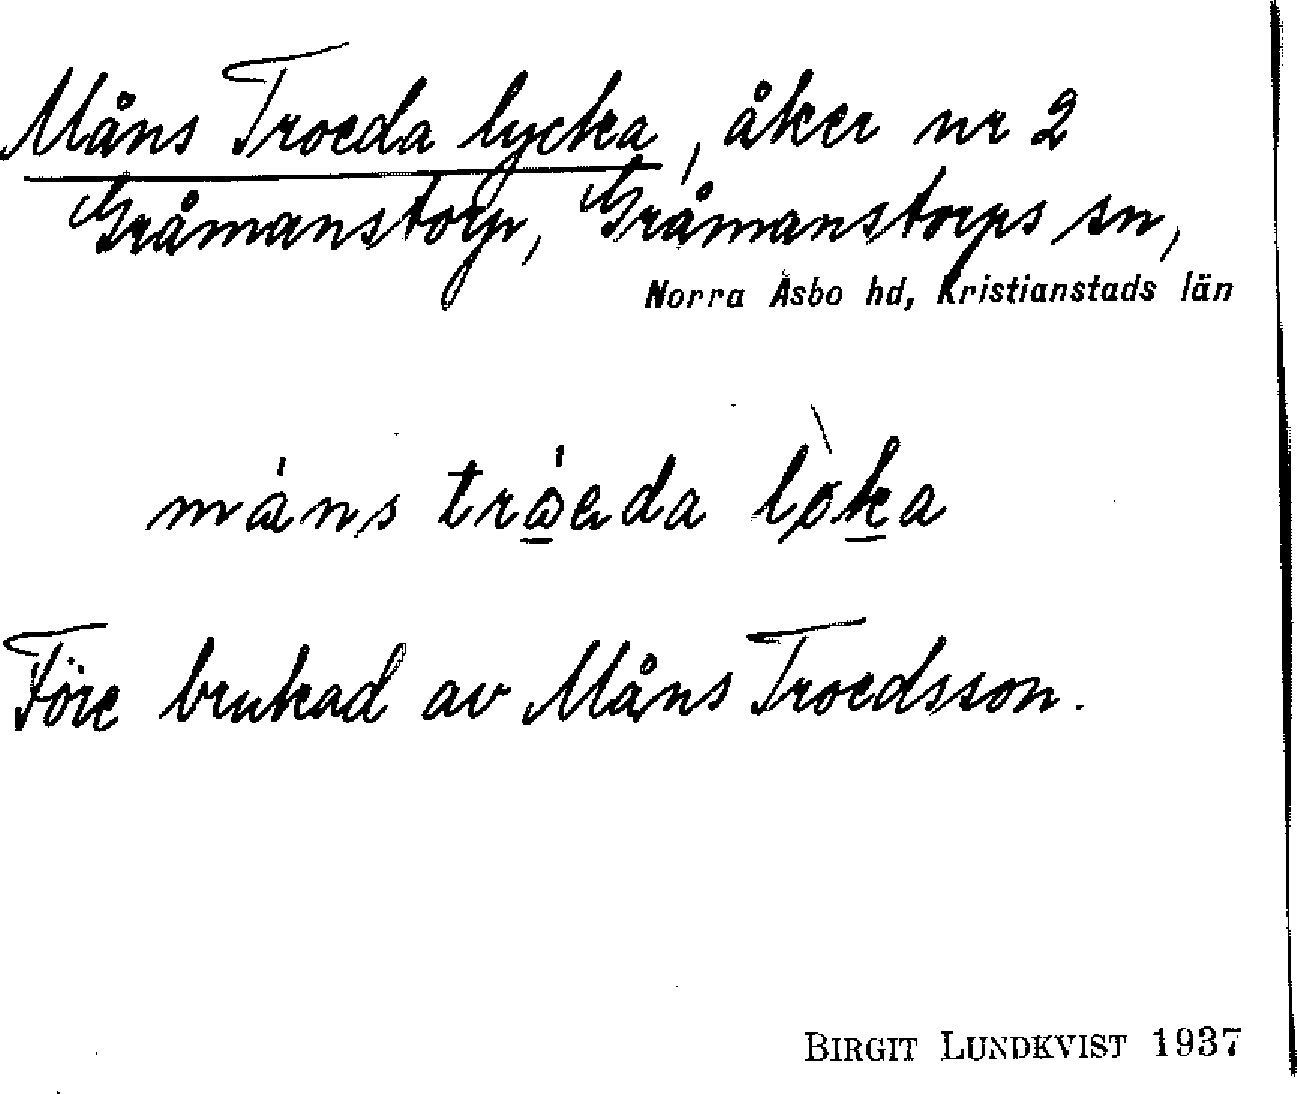 Måns Troeda lycka, åker nr 2
Gråmanstorp, Gråmanstorps sn,
Norra Åsbo hd, Kristianstads län
måns troeda löka
Före brukad av Måns Troedsson.
BIRGIT LUNDKVIST 1937